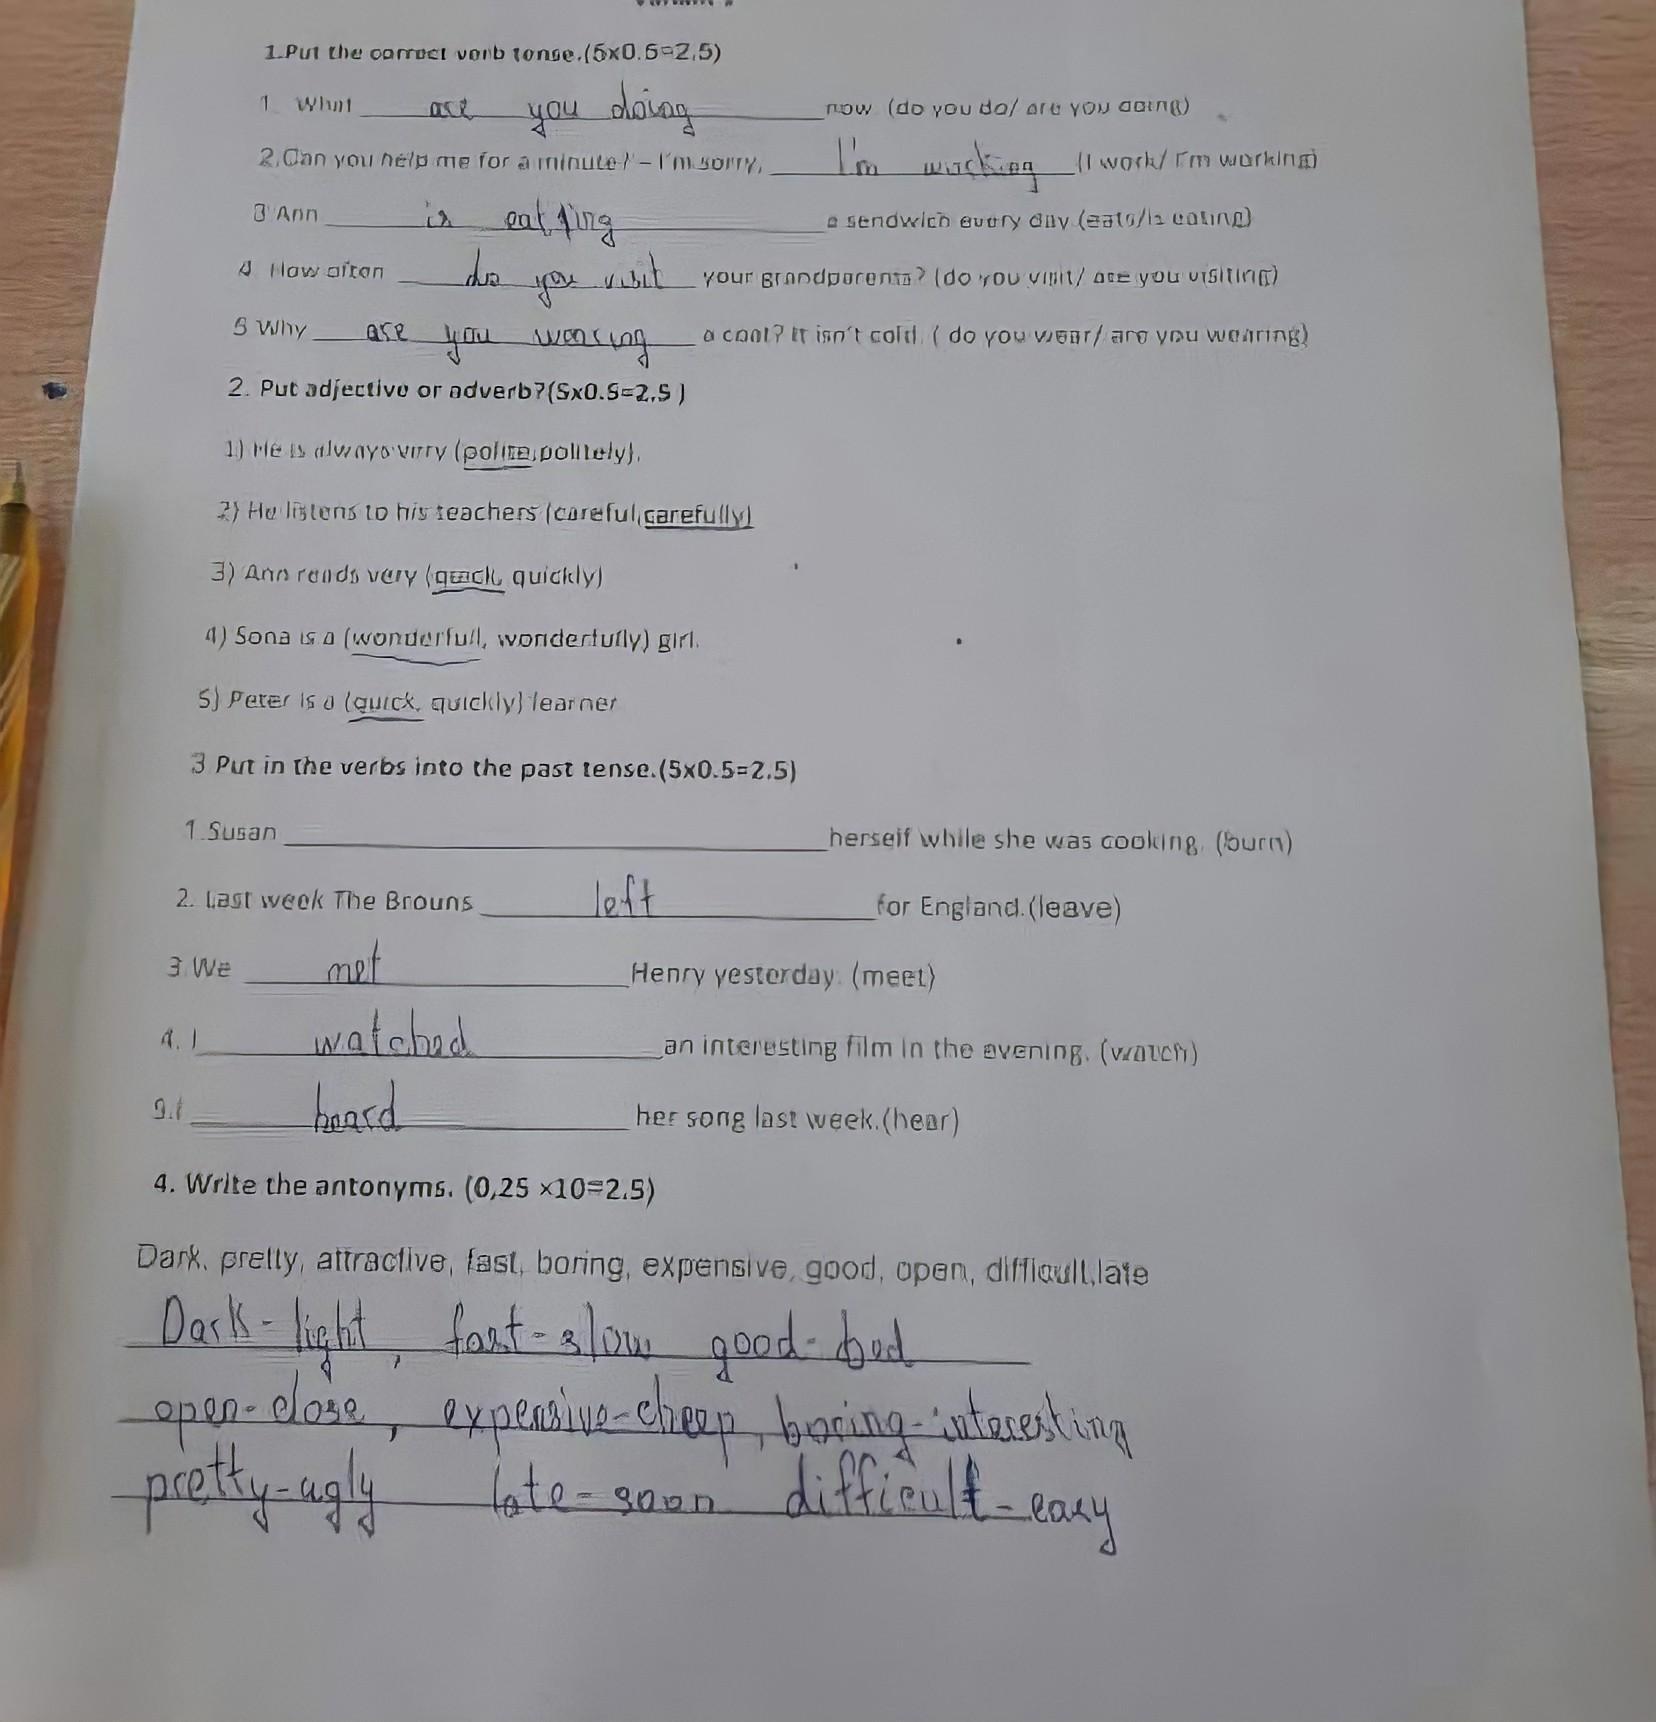 1.Put the correct verb tense.(5x0.5=2,5)
1. What are you doing now (do you do/ are you doing)
2.Can you help me for a minute? – I'm sorry, I'm working (I work/ I'm working)
3 Ann is eatting a sendwich every day.(eats/is eating)
4 How often do you visit your grandparents? (do you visit/ are you visiting)
5 Why are you wearing a coat? It isn't cold. ( do you wear/ are you wearing)
2. Put adjective or adverb?(5x0.5=2,5 )
1) He is always very (polite,politely).
2) He listens to his teachers (careful,carefully)
3) Ann reads very (quick, quickly)
4) Sona is a (wonderfull, wonderfully) girl.
5) Peter is a (quick, quickly) learner
3 Put in the verbs into the past tense.(5x0.5=2.5)
1.Susan herself while she was cooking. (burn)
2. Last week The Brouns left for England.(leave)
3.We met Henry yesterday. (meet)
4. I watched an interesting film in the evening. (watch)
I heard her song last week.(hear)
4. Write the antonyms. (0,25 ×10=2.5)
Dark, pretty, attractive, fast, boring, expensive, good, open, difficult,late
Dark - light, fast - slow good - bad
open - close, expensive - cheep, boring - interesting
pretty - ugly late - soon difficult - easy